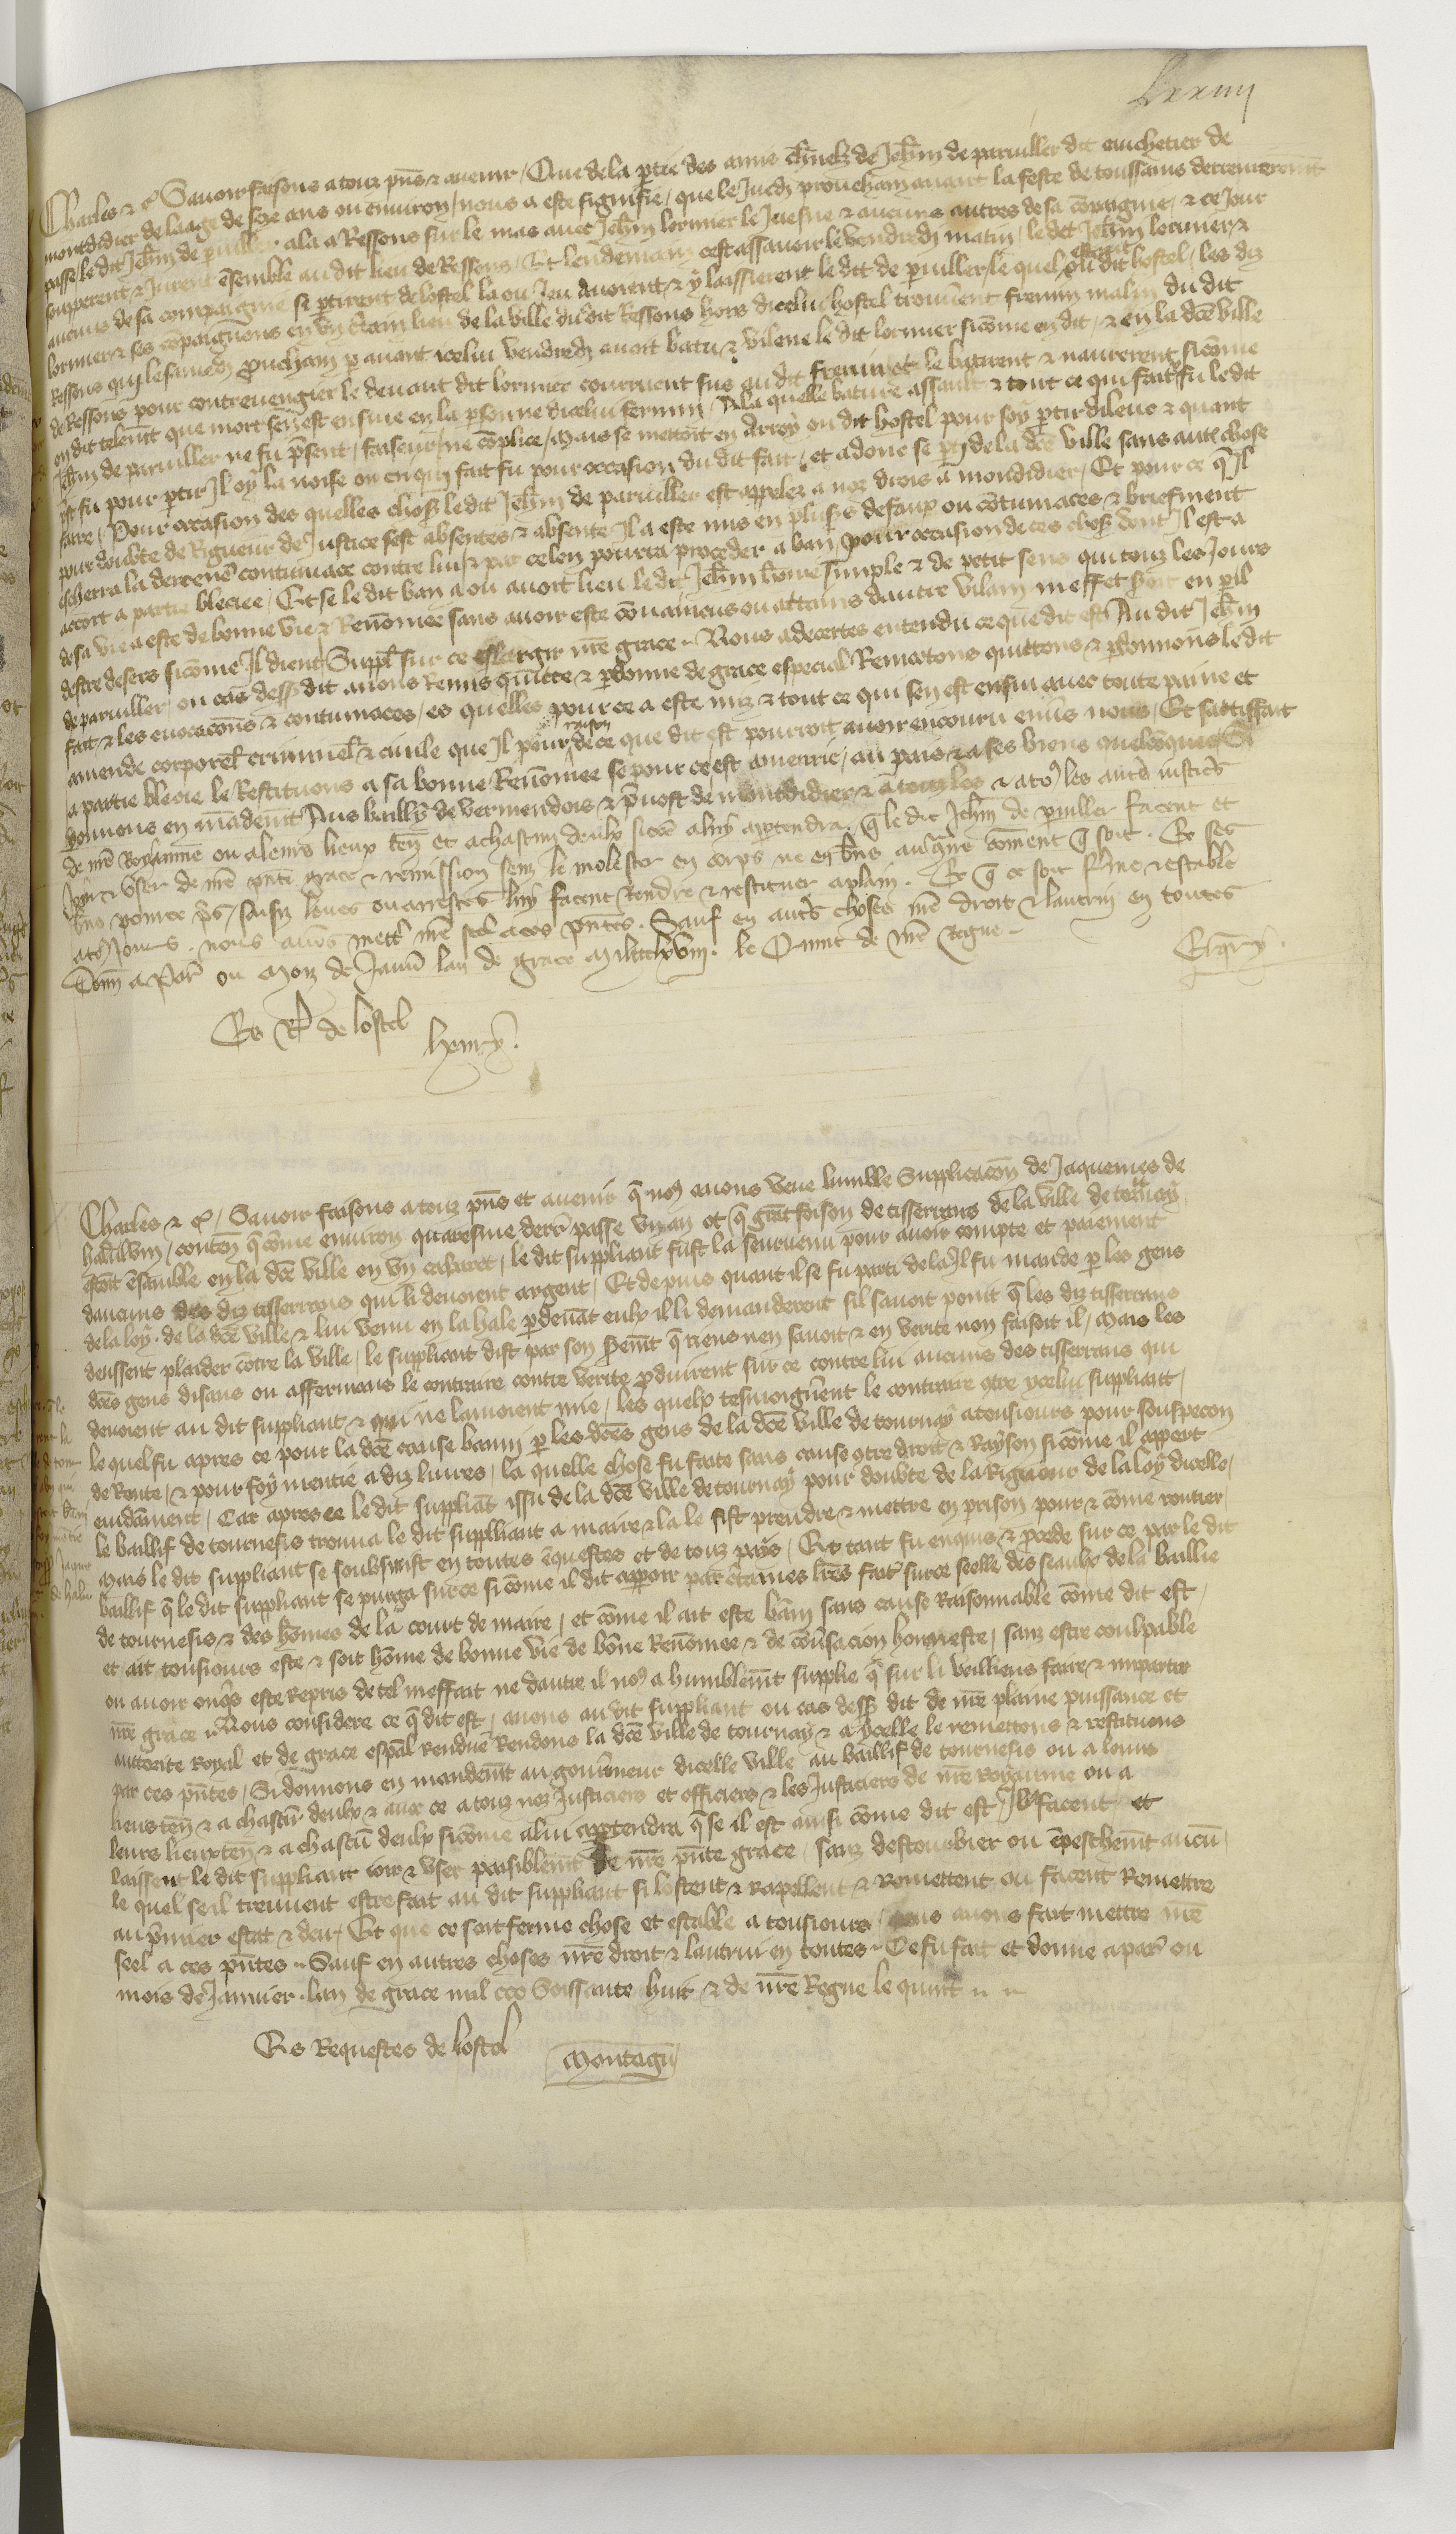 Lxxiiii
Charles &c. Savoir faisons a touz pñs & avenir / Que de la p̃tie des amis ch̃nelz de Jeh̃m de paruiller dit euichetier de
montdidier de laage de seze ans ou environ / nous a este signifie / que le Juedy prouchain avant la feste de toussains derrenierem̃t
passe le dit Jeh̃m de p̃uiller ala a Ressons sur le mas avec Jeh̃m lormier le Juesne & aucuns autres de sa cõpaignie / & ce Jour
soupperent & Jurent ẽsemble au dit lieu de Ressons / Et lendemain cest assavoir le vendredy matin / le dit Jeh̃m lormier &
aucuns de sa compaignie se p̃tirent de lostel la ou Jeu avoient & y laissierent le dit de p̃uiller / le quel estant ou dit hostel / les diz
lormier & ses cõpaignons en vn c̃tain lieu de la ville du dit Ressons hors dicelui hostel trouverent fremin malin du dit
Ressons qui le samedy prouchain p̃avant icelui vendredy avoit batu & vilene le dit lormier si cõme en dit / & en la dc̃e ville
de Ressons pour contrevengier le devant dit lormier coururent sus au dit fremin et le batirent & navrerent si cõme
on dit telem̃t que mort sen est ensuie en la p̃sonne dicelui fermin / A la quelle bature assault & tout ce qui fait fu le dit
Jeh̃m de paruiller ne fu p̃sent / faiseur ne cõplice / Mais se mettoit en arroy ou dit hostel pour soy p̃tir dilenc & quant
prest fu pour p̃tir Il oy la noise ou cri qui fait fu pour occasion du dit fait / et adonc se p̃ty de la dc̃e ville sans autre chose
faire / Pour occasion des quelles choses le dit Jeh̃m de paruiller est appelez a noz drois a mondidier / Et pour ce q̃ Il
pour doubte de Rigueur de Justice sest absentez & absente Il a este mis en plus̃s defaux ou cõtumaces & briefment
escherra la derrenie contumace contre lui & par ce len pourra proceder a ban / pour occasion de ces choses dont Il est a
accort a partie bleciee / Et se le dit ban a ou avoit lieu le dit Jeh̃m hõme simple & de petit sens qui touz les Jours
de sa vie a este de bonne vie & Renõmee sans avoir este cõvaincus ou attains dautre vilain meffet seroit en p̃il
destre desers si cõme Il dient Suppl̃ sur ce eslargir nr̃e grace .. Nous adecertes entendu ce que dit est Au dit Jeh̃m
de paruiller / ou cas dessus dit avons Remis quitte & p̃donne de grace especial Remettons quittons & p̃donnons le dit
fait & les evocacõns & contumaces / es quelles pour ce a este mis & tout ce qui sen est ensui avec toute paine et
amende corporel̃ criminel̃ & civile que Il pour raison de ce que dit est pourroit avoir encouru envs̃ nous / Et satisffait
a partie blecie le Restituons a sa bonne Renõmee se pour ce est amenrie / au pais & a ses biens quelcõques / Si
donnons en mandem̃t Aus bailly de vermendois & p̃vost de montdidier & a touz les & a toz les autres justic̃s
de nr̃e Royaume ou a leurs lieux ten̄ et a chascun deulx sicõe a luy app̃tendra q̃ le dit Jeh̃m de p̃uiller facent et
Joir & vser de nr̃e p̃nte grace & remission senz le molester en corps ne en b̃ns aucu̇ne cõment q̃ soit . Et ses
b̃ns pour ce p̃s / saisiz levez ou arrestez luy facent rendre & restituer a plain . Et q̃ ce soit f̃me & estable
a toz Jours . nous avõs mett̃ nr̃e seel a ces p̃ntes . Sauf en aut̃s choses nr̃e droit & lautruy en toutes
Doñ a Par̃ ou Moiz de Janv̄ lan de grace Mil ccc lxviij . le Quint de nr̃e Regne ..
Es Req̃ de lostel
henry .
Charles &c / Savoir faisons a touz p̃ns et avenir q̃ noz avons veue lumble supplicacõn de Jaquemes de
haluwin / conteñ q̃ cõme environ quaresme derr̃ passe vn an et q̃ grãt foison de tisserrans de la ville de tournay
estoit ẽsemble en la dc̃e ville en vn cabaret / le dit suppliant fust la seurvenu pour avoir compte et paiement
daucuns des diz tisserrans qui li devoient argent / Et depuis quant il se fu parti dela Il fu mande p̃ les gens
de la loy . de la dc̃e ville & lui venu en la hale p̃devãt eulx il li demanderent sil savoit point q̃ les diz tisserrans
deussent plaider cõtre la ville / le suppliant dist par son serem̃t q̃ riens nen savoit & en verite non faisoit il / Mais les
dc̃es gens disans ou affermans le contraire contre verite p̃duirent sur ce contre lui aucuns des tisserrans qui
devoient au dit suppliant & qui ne lamoient mie / les quelx tesmoignerent le contraire cõtre ycelui suppliant /
le quel fu apres ce pour la dc̃e cause banni p̃ les dc̃es gens de la dc̃e ville de tournay a tousiours pour souspecon
de Rente / & pour foy mentie a diz livres / la quelle chose fu faite sans cause cõtre droit & Rayson si cõme il appert
evidãment / Car apres ce le dit suppliãt issu de la dc̃e ville de tournay pour doubte de la Rigueur de la loy dicelle /
le baillif de tournesis trouva le dit suppliant a maire & la le fist prendre & mettre en prison pour & cõme routier /
Mais le dit suppliant se soubsmist en toutes ẽquestes et de touz pays / Et tant fu enquis & p̃cede sur ce par le dit
baillif q̃ le dit suppliant se purga sur ce si cõme il dit apparoir par c̃taines lr̃es fait̃ sur ce seelle des seaulx de la baillie
de tournesis & des hõmes de la court de maire / et cõme il ait este bãni sans cause Raisonnable cõme dit est /
et ait tousiours este & soit hõme de bonne vie de bõne Renõmee & de cõvsacion honneste / sanz estre coulpable
ou avoir onq̃s este Repris de tel meffait ne dautre il noz a humblem̃t supplie q̃ sur li veilliens faire & impartir
nr̃e grace .. Nous considere ce q̃ dit est / avons au dit suppliant ou cas dessus dit de nr̃e plaine puissance et
auttorite Royal et de grace esp̃al rendue Rendons la dc̃e ville de tournay & a ycelle le remettons & restituons
par ces p̃ntes / Si donnons en mandem̃t au gouverneur dicelle ville au baillif de tournesis ou a leurs
liens teñ & a chascũ deulx & avec ce a touz noz Justiciers et officiers & les Justiciers de nr̃e Royaume ou a
leurs lieux teñ & a chascũ deulx si cõme a lui app̃tendra q̃ se il est ainsi cõme dit est / Ilz facent et
laissent le dit suppliant joir & vser paisiblem̃t de nr̃e p̃nte grace / sanz destourbier ou ẽpeschem̃t aucũ /
le quel se il treuvent estre fait au dit suppliant si lostent & rapellent & Remettent ou facent Remettre
au p̃mier estat & deu / Et que ce soit ferme chose et estable a tousiours / nous avons fait mettre nr̃e
seel a ces p̃ntes .. Sauf en autres choses nr̃e droit & lautrui en toutes .. Ce fu fait et donne a par̃ ou
mois de Janvier . lan de grace mil ccc Soissante huit & de nr̃e Regne le quint .. ..
Es Requestes de lostel
Montagu